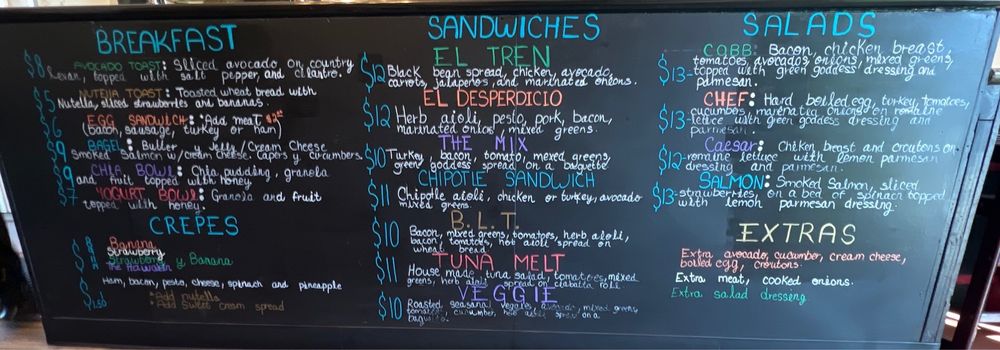 BREAKFAST
$8 AVOCADO TOAST: Sliced avocado on country
topped with salt pepper, and cilantro.
$5 NUTELLA TOAST: Toasted wheat bread with
Nutella, sliced strawberries and bananas.
$6 EGG SANDWICH: *Add meat $2
(bacon, sausage, turkey or ham)
BAGEL: Butter y Jelly/Cream Cheese
$9 Smoked Salmon w/cream cheese, capers y cucumbers.
$9 CHIA BOWL: Chia pudding, granola
and fruit topped with honey.
$7 YOGURT BOWL: Granola and fruit
topped with honey.
CREPES
Banana
Strawberry
Strawberry y Banana
the Hawaiian
Ham, bacon, pesto, cheese, spinach and pineapple
*Add nutella
*Add sweet cream spread
SANDWICHES
EL TREN
$12 Black bean spread, chicken, avocado,
carrots, jalapeños, and marinated onions.
EL DESPERDICIO
$12 Herb aioli, pesto, pork, bacon,
marinated onion, mixed greens.
THE MIX
$10 Turkey, bacon, tomato, mixed greens,
green goddess spread on a baguette
CHIPOTLE SANDWICH
$11 Chipotle aioli, chicken or turkey, avocado
mixed greens
B.L.T
$10 Bacon, mixed greens, tomatoes, herb aioli,
bacon, tomatoes, herb aioli spread on
wheat bread
TUNA MELT
$11 House made, tuna salad, tomatoes, mixed
greens, herb aioli spread on ciabatta roll
VEGGIE
$10 Roasted seasonal veggies, avocado, mixed greens,
tomatoes, cucumber, herb aioli spread on a
baguette.
SALADS
COBB: Bacon, chicken breast,
tomatoes, avocados, onions, mixed greens,
$13-topped with green goddess dressing and
parmesan.
CHEF: Hard boiled egg, turkey, tomatoes,
cucumbers, marinated onions on romaine
$13-lettuce with green goddess dressing and
parmesan.
Caesar: Chicken breast and croutons on
$12-romaine lettuce with lemon parmesan
dressing and parmesan.
SALMON: Smoked Salmon, sliced
$13-strawberries, on a bed of spinach topped
with lemon parmesan dressing.
EXTRAS
Extra avocado, cucumber, cream cheese,
boiled egg, croutons.
Extra meat, cooked onions.
Extra salad dressing